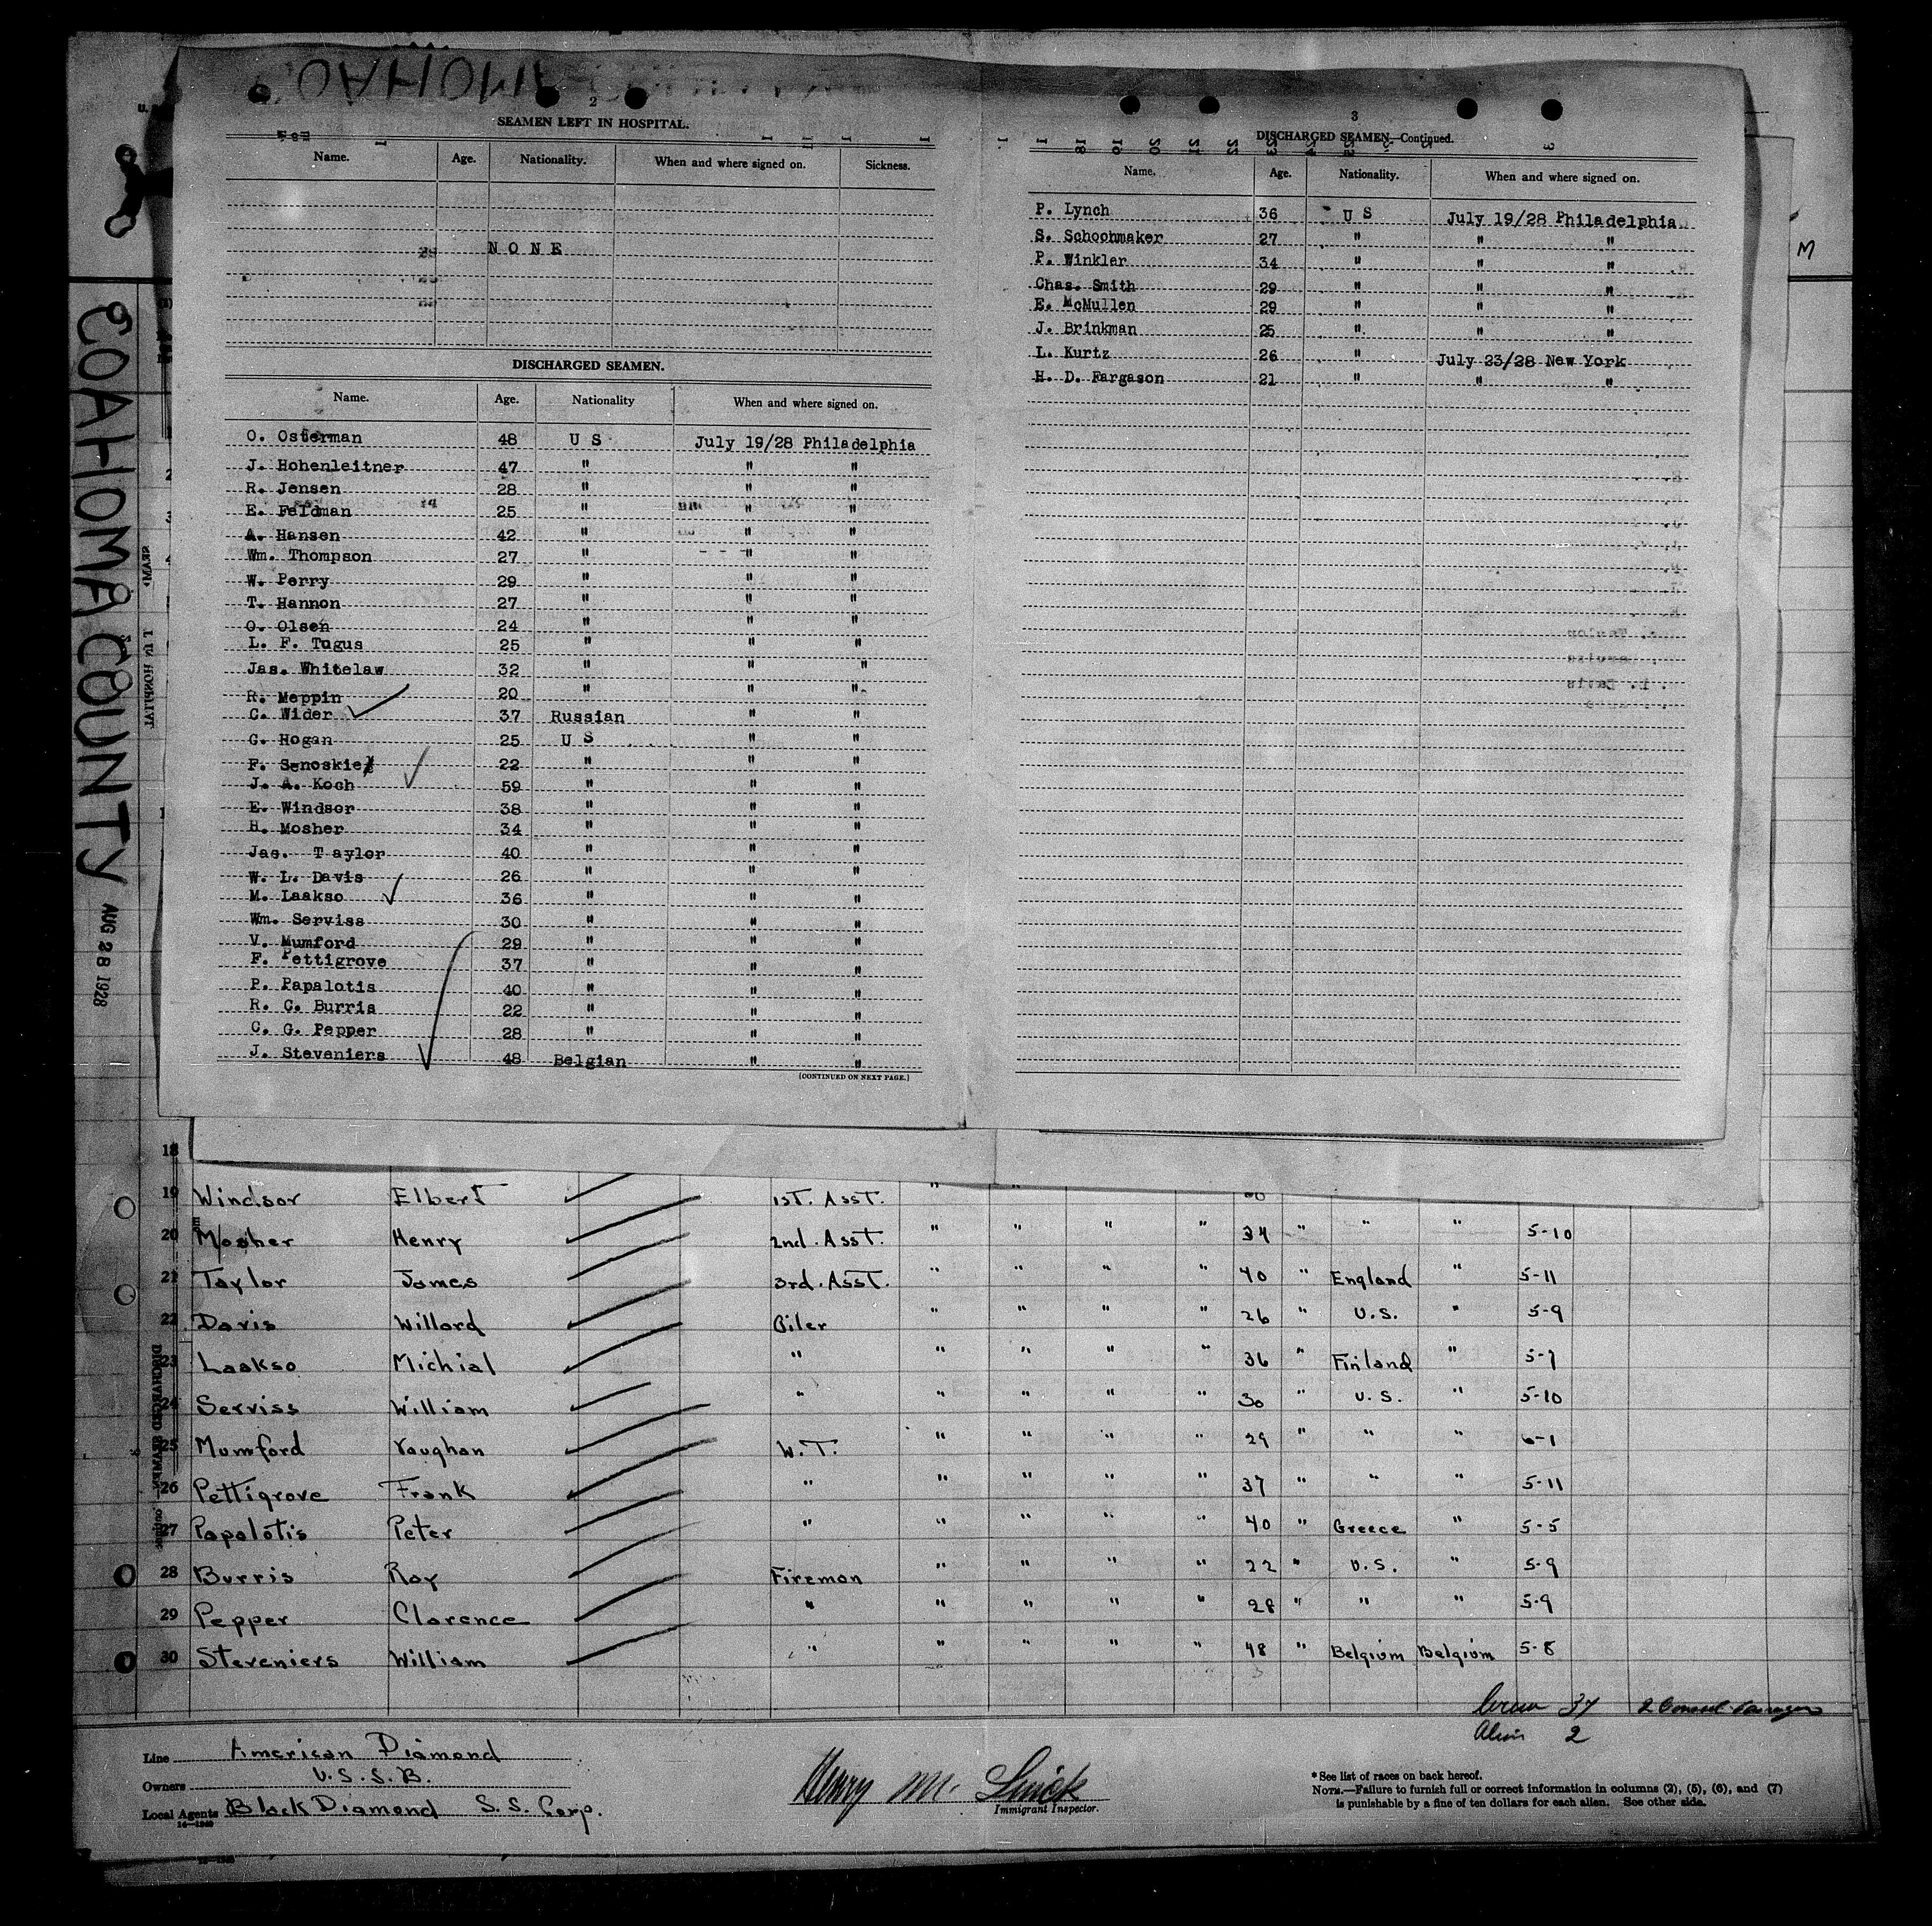 COAHOMA COUNTY
AUG 28 1928
2
SEAMEN LEFT IN HOSPITAL.
Name. Age. Nationality. When and where signed on. Sickness.
N O N E
DISCHARGED SEAMEN.
Name. Age. Nationality When and where signed on.
O. Osterman 48 U S July 19/28 Philadelphia
J. Hohenleitner 47 " " "
R. Jensen 28 " " "
E. Feldman 25 " " "
A. Hansen 42 " " "
Wm. Thompson 27 " " "
W. Perry 29 " " "
T. Hannon 27 " " "
O. Olsen 24 " " "
L. F. Tugus 25 " " "
Jas. Whitelaw 32 " " "
R. Meppin 20 " " "
C. Wider 37 Russian " "
G. Hogan 25 U S " "
F. Senoskie 22 " " "
J. A. Koch 59 " " "
E. Windsor 38 " " "
H. Mosher 34 " " "
Jas. T aylor 40 " " "
W. L. Davis 26 " " "
M. Laakso 36 " " "
Wm. Serviss 30 " " "
V. Mumford 29 " " "
F. Pettigrove 37 " " "
P. Papalotis 40 " " "
R. C. Burris 22 " " "
C. G. Pepper 28 " " "
J. Steveniers 48 Belgian " "
(CONTINUED ON NEXT PAGE.)
3
DISCHARGED SEAMEN—Continued.
Name. Age. Nationality. When and where signed on.
P. Lynch 36 U S July 19/28 Philadelphia
S. Schoohmaker 27 " " "
P. Winkler 34 " " "
Chas. Smith 29 " " "
E. McMullen 29 " " "
J. Brinkman 25 " " "
L. Kurtz 26 " July 23/28 New York
H. D. Fargason 21 " " "
M
18
19 Windsor Elbert 1st. Asst. " "
20 Mosher Henry 2nd. Asst. " " " " 34 " " " 5-10
21 Taylor James 3rd. Asst. " " " " 40 " England " 5-11
22 Davis Willard Oiler " " " " 26 " U.S. " 5-9
23 Laakso Michial " " " " " 36 " Finland " 5-7
24 Serviss William " " " " " 30 " U.S. " 5-10
25 Mumford Vaughan W.T. " " " " 29 " " " 6-1
26 Pettigrove Frank " " " " " 37 " " " 5-11
27 Papalotis Peter " " " " " 40 " Greece " 5-5
28 Burris Roy Fireman " " " " 22 " U.S. " 5-9
29 Pepper Clarence " " " " " 28 " " " 5-9
30 Steveniers William " " " " " 48 " Belgium Belgium 5-8
Crew 37
Alien 2
Line American Diamond
Owners U.S.S.B.
Local Agents Black Diamond S.S. Corp.
Henry M.
Immigrant Inspector.
* See list of races on back hereof.
NOTE.—Failure to furnish full or correct information in columns (2), (5), (6), and (7)
is punishable by a fine of ten dollars for each alien. See other side.